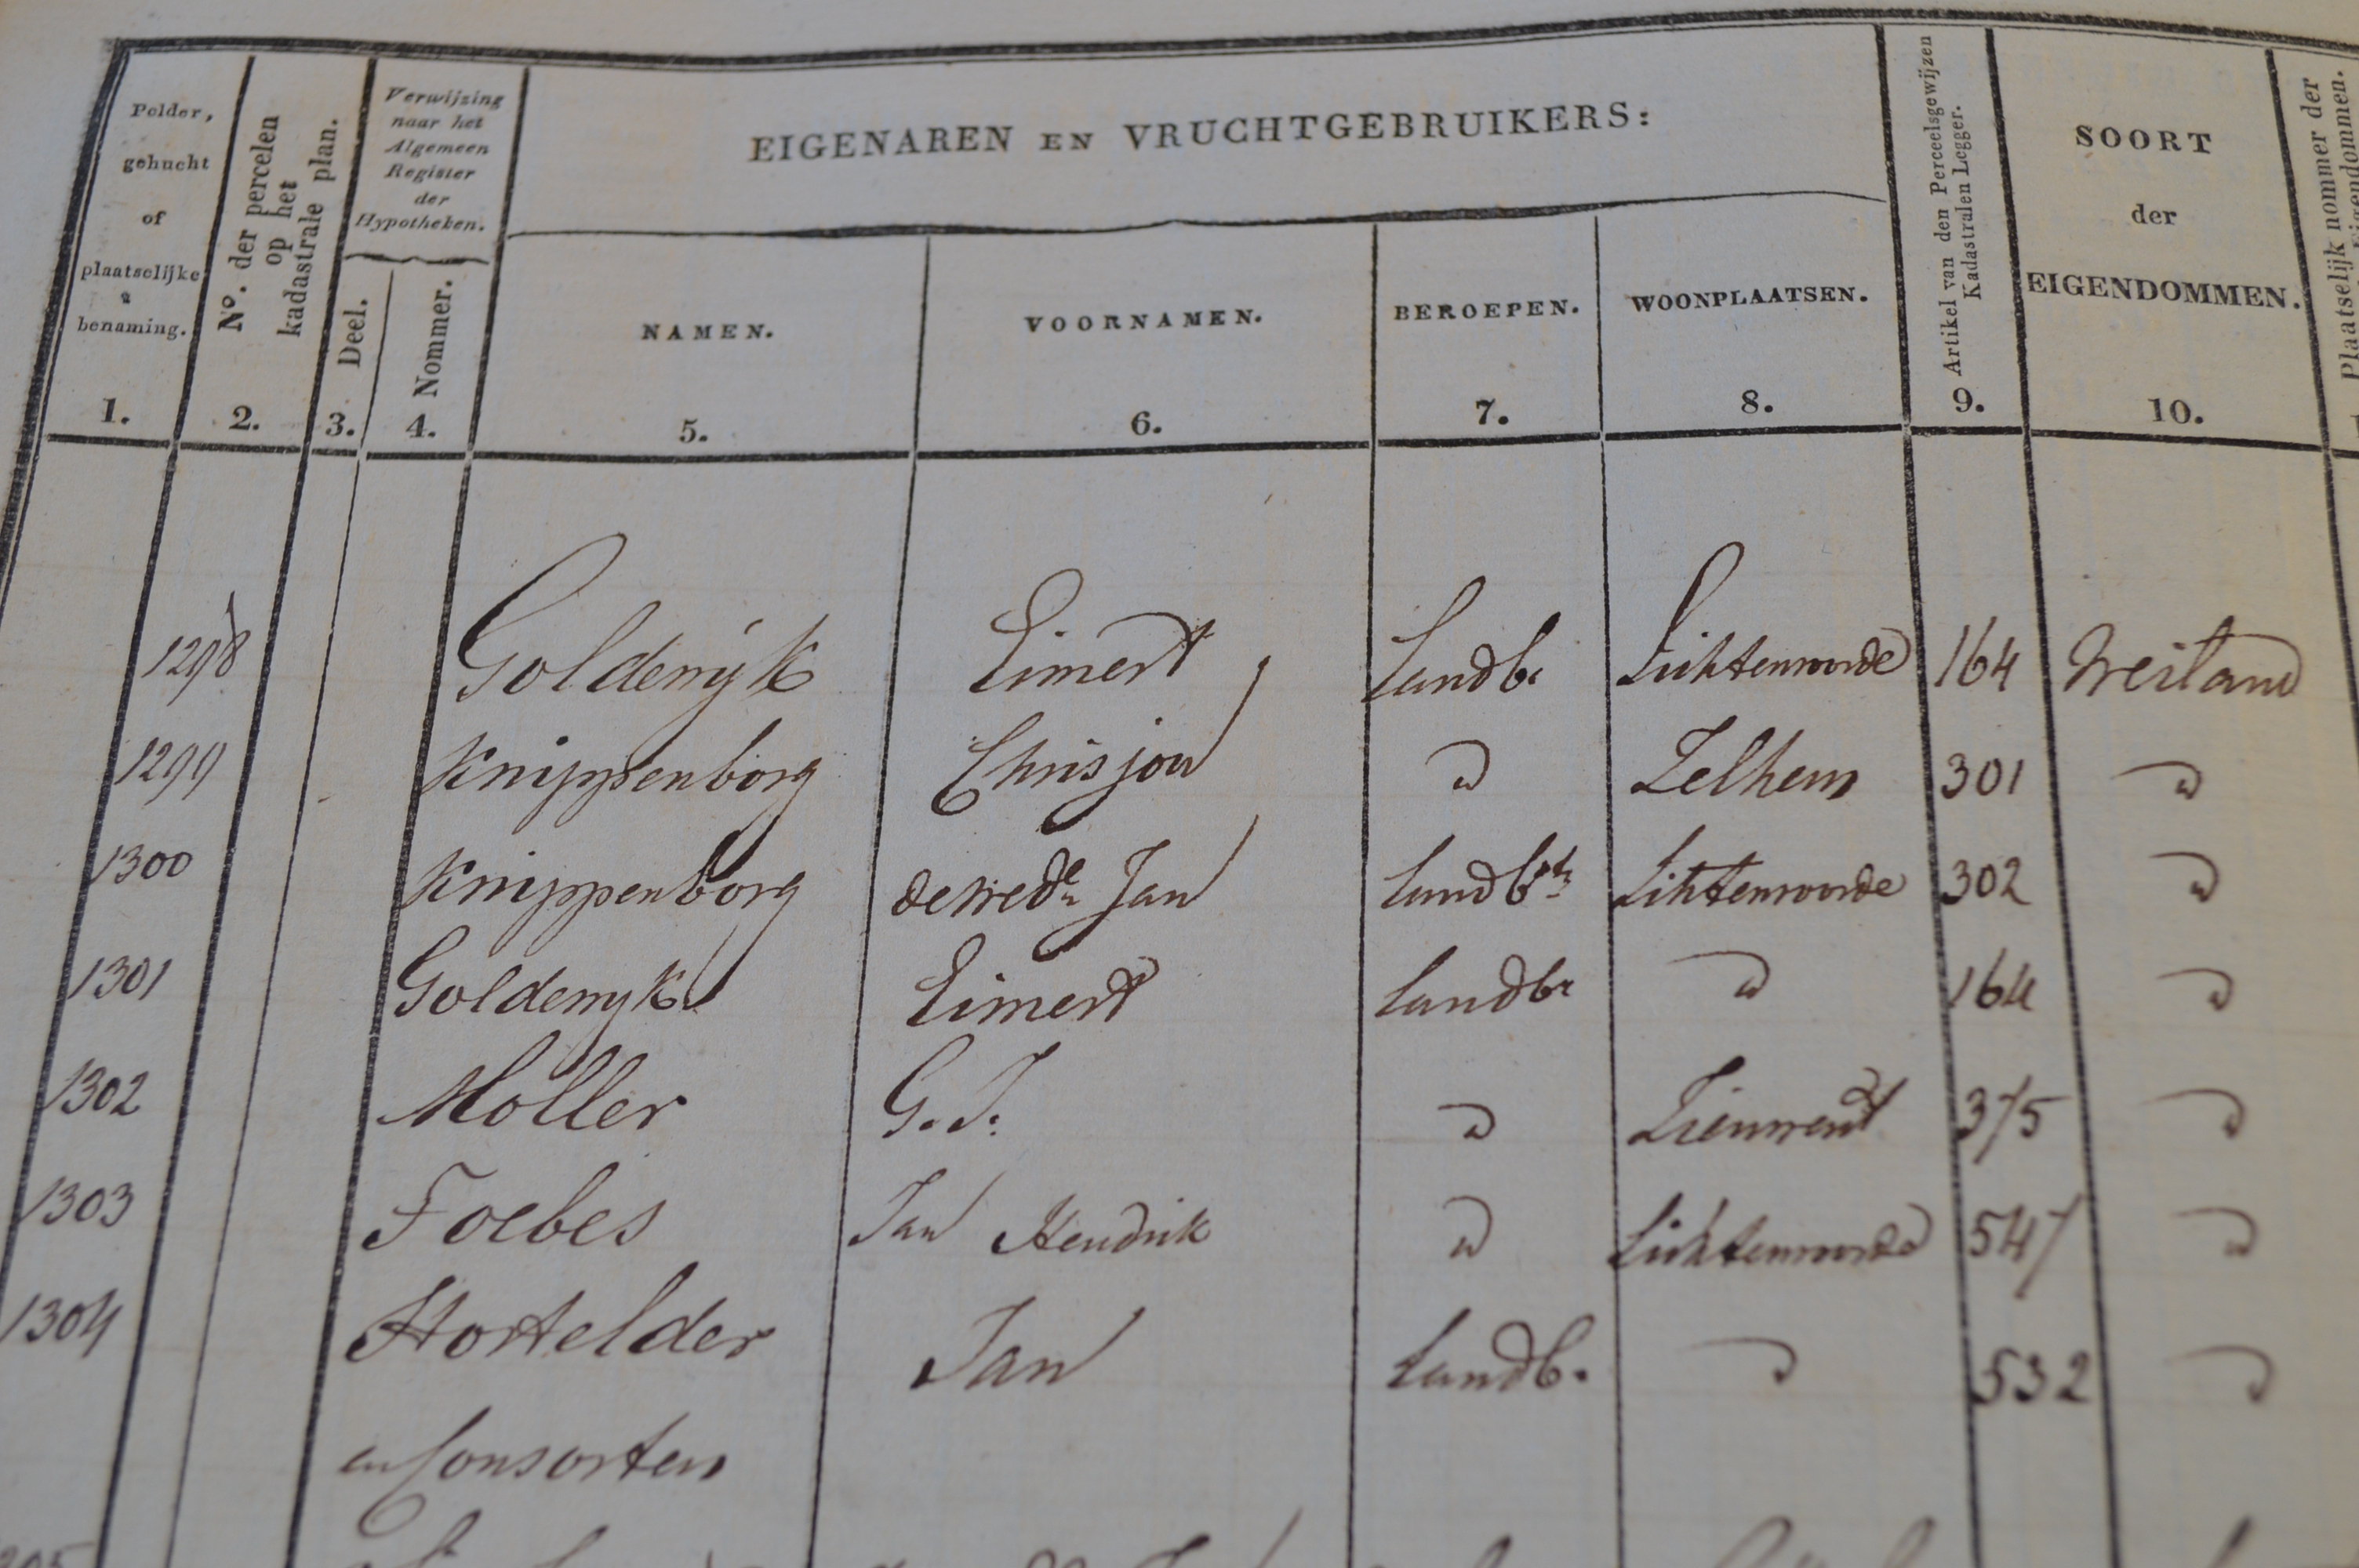 Polder,
gehucht
of
plaatselijke
benaming.
1.
N°. der percelen
op het
kadastrale plan.
2.
Verwijzing
naar het
Algemeen
Register
der
Hypotheken.
Deel.
3.
Nommer.
4.
EIGENAREN EN VRUCHTGEBRUIKERS:
NAMEN.
5.
VOORNAMEN.
6.
BEROEPEN.
7.
WOONPLAATSEN.
8.
Artikel van den Perceelsgewijzen
Kadastralen Legger.
9.
SOORT
der
EIGENDOMMEN.
10.
Plaatselijk nommer der
Eigendommen.
1298 Goldewijk Eimert Landbr Lichtenvoorde 164 Weiland
1299 Knippenborg Chrisjan " Zelhem 301 "
1300 Knippenborg de Wede Jan Landbrsch Lichtenvoorde 302 "
1301 Goldewyk Eimert Landbr " 164 "
1302 Moller G.J. " Zieuwent 375 "
1303 Foebes Jan Hendrik " Lichtenvoorde 547 "
1304 Hortelder Jan Landb. " 532 "
en Consorten